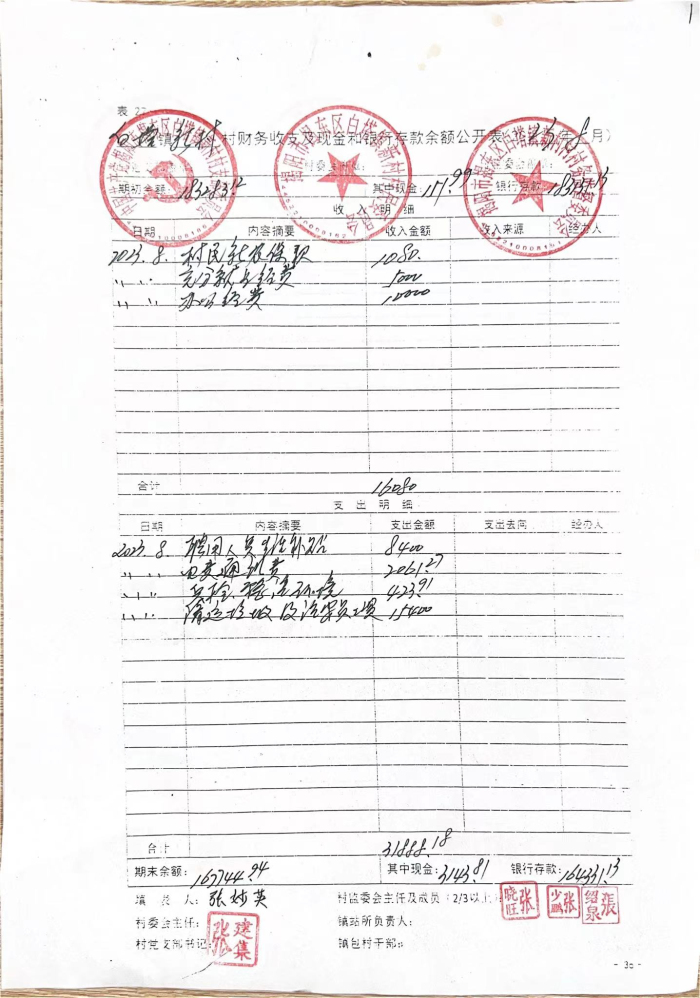 1
表 22
白塔镇新村村财务收支及现金和银行存款余额公开表(23年8月)
期初余额: 183283.12 其中现金: 151.99 银行存款: 183131.13
收 入 明 细
日期 内容摘要 收入金额 收入来源 经办人
2023.8. 村民新农保款 1080.
〃 〃 5000
〃 〃 办公经费 10000
合计 16080
支 出 明 细
日期 内容摘要 支出金额 支出去向 经办人
2023.8. 聘用人员生活补贴 8400
〃 〃 电费通讯费 2061.27
〃 〃 6423.91
〃 〃 清运垃圾及保洁员工资 15400
合计 31888.18
期末余额: 167744.94 其中现金: 3143.81 银行存款: 164331.13
填 表 人: 张妙英 村监委会主任及成员(2/3以上)
张晓旺 张少鹏 張绍泉
村委会主任: 镇站所负责人:
村党支部书记: 张建集 镇包村干部:
- 36 -